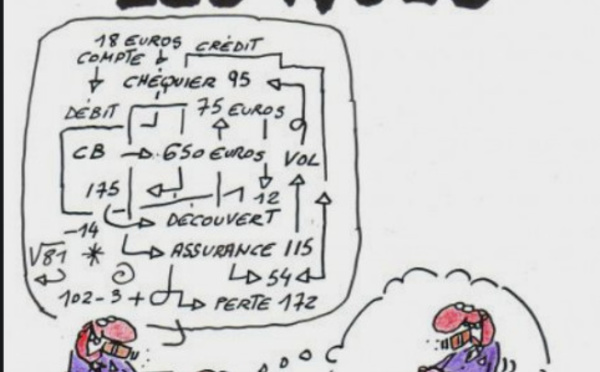 18 EUROS CRÉDIT
COMPTE
CHÉQUIER 95
DÉBIT 75 EUROS
CB 650 EUROS VOL
175 12
DÉCOUVERT
-14
√81 * ASSURANCE 115
54
102-3+ PERTE 172